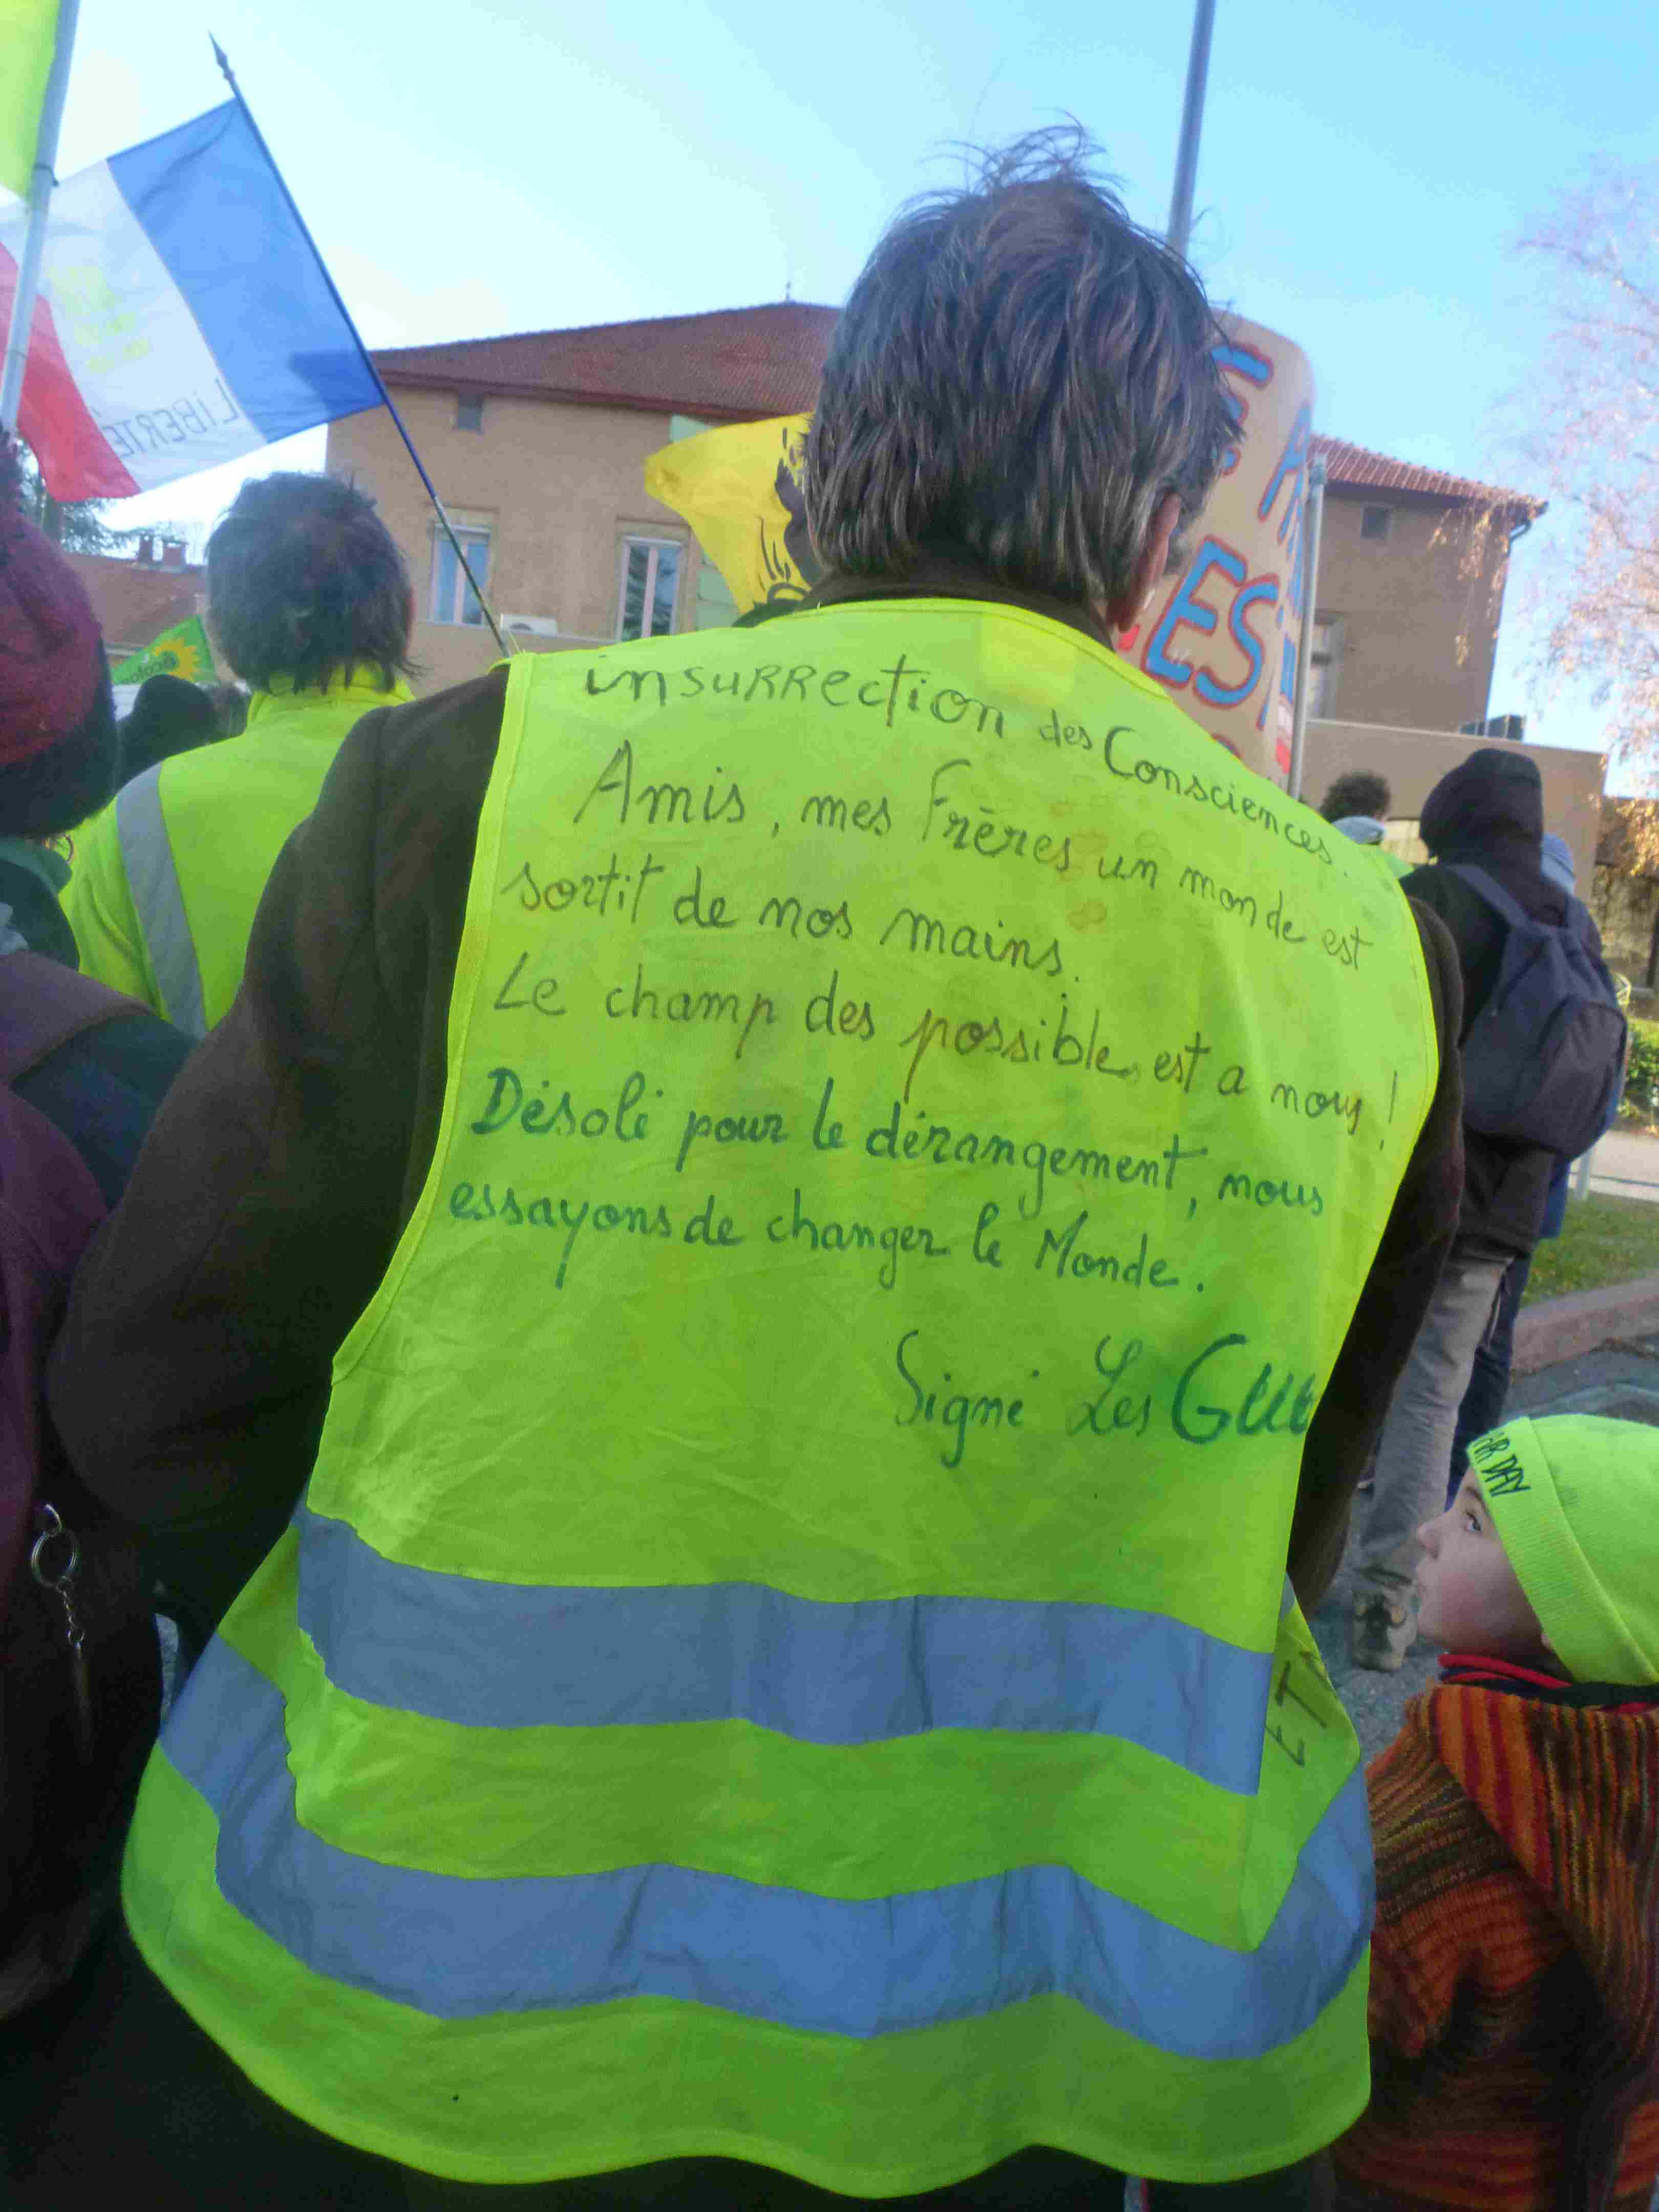 insurrection des Consciences.
Amis, mes Frères un monde est
sortit de nos mains.
Le champ des possible est a nous !
Désolé pour le dérangement, nous
essayons de changer le Monde.
Signé Les
LIBERTÉ
DAY
ET